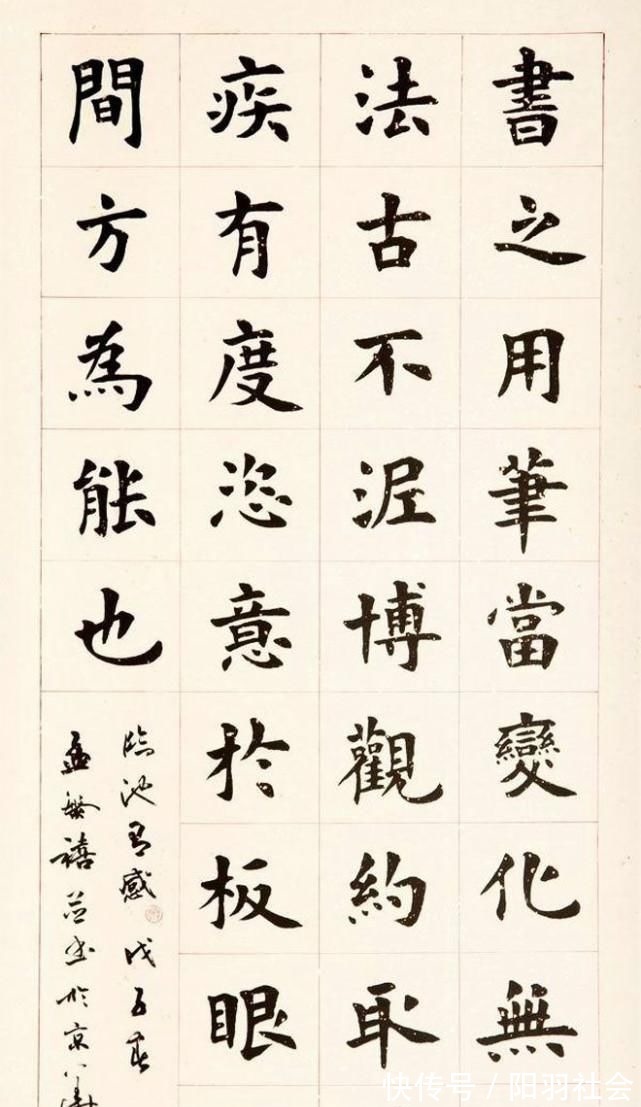 書之用筆當變化無
法古不泥博觀約取
疾有度恣意於板眼
間方為能也
臨池有感 戊子春
孟繁禧並書於京
快传号 / 阳羽社会